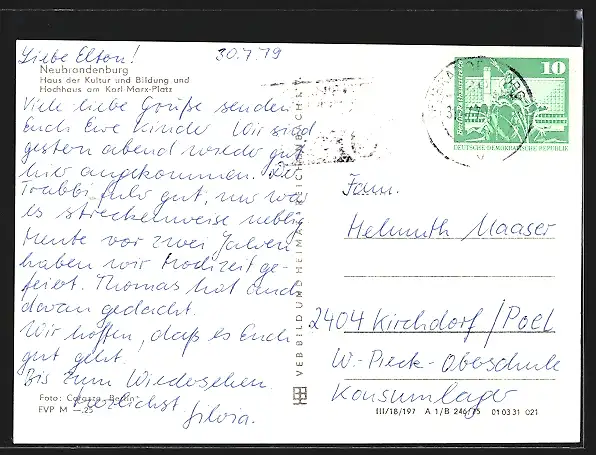 Liebe Eltern! 30.7.79
Neubrandenburg
Haus der Kultur und Bildung und
Hochhaus am Karl-Marx-Platz
Viele liebe Grüße senden
Euch Eure Kinder. Wir sind
gestern abend wieder gut
hier angekommen. Der
Trabbi fuhr gut, nur war
es streckenweise neblig.
Heute vor zwei Jahren
haben wir Hochzeit ge-
feiert. Thomas hat auch
daran gedacht.
Wir hoffen, daß es Euch
gut geht.
Bis zum Wiedersehen.
Herzlichst
Silvia.
Foto: Corazza, Berlin
EVP M –.25
VEB BILD UND HEIMAT REICHENBACH
10
DEUTSCHE DEMOKRATISCHE REPUBLIK
Fam.
Helmuth Maaser
2404 Kirchdorf / Poel
W.-Pieck-Oberschule
Konsumlager
III/18/197 A 1/B 246/75 01 03 31 021